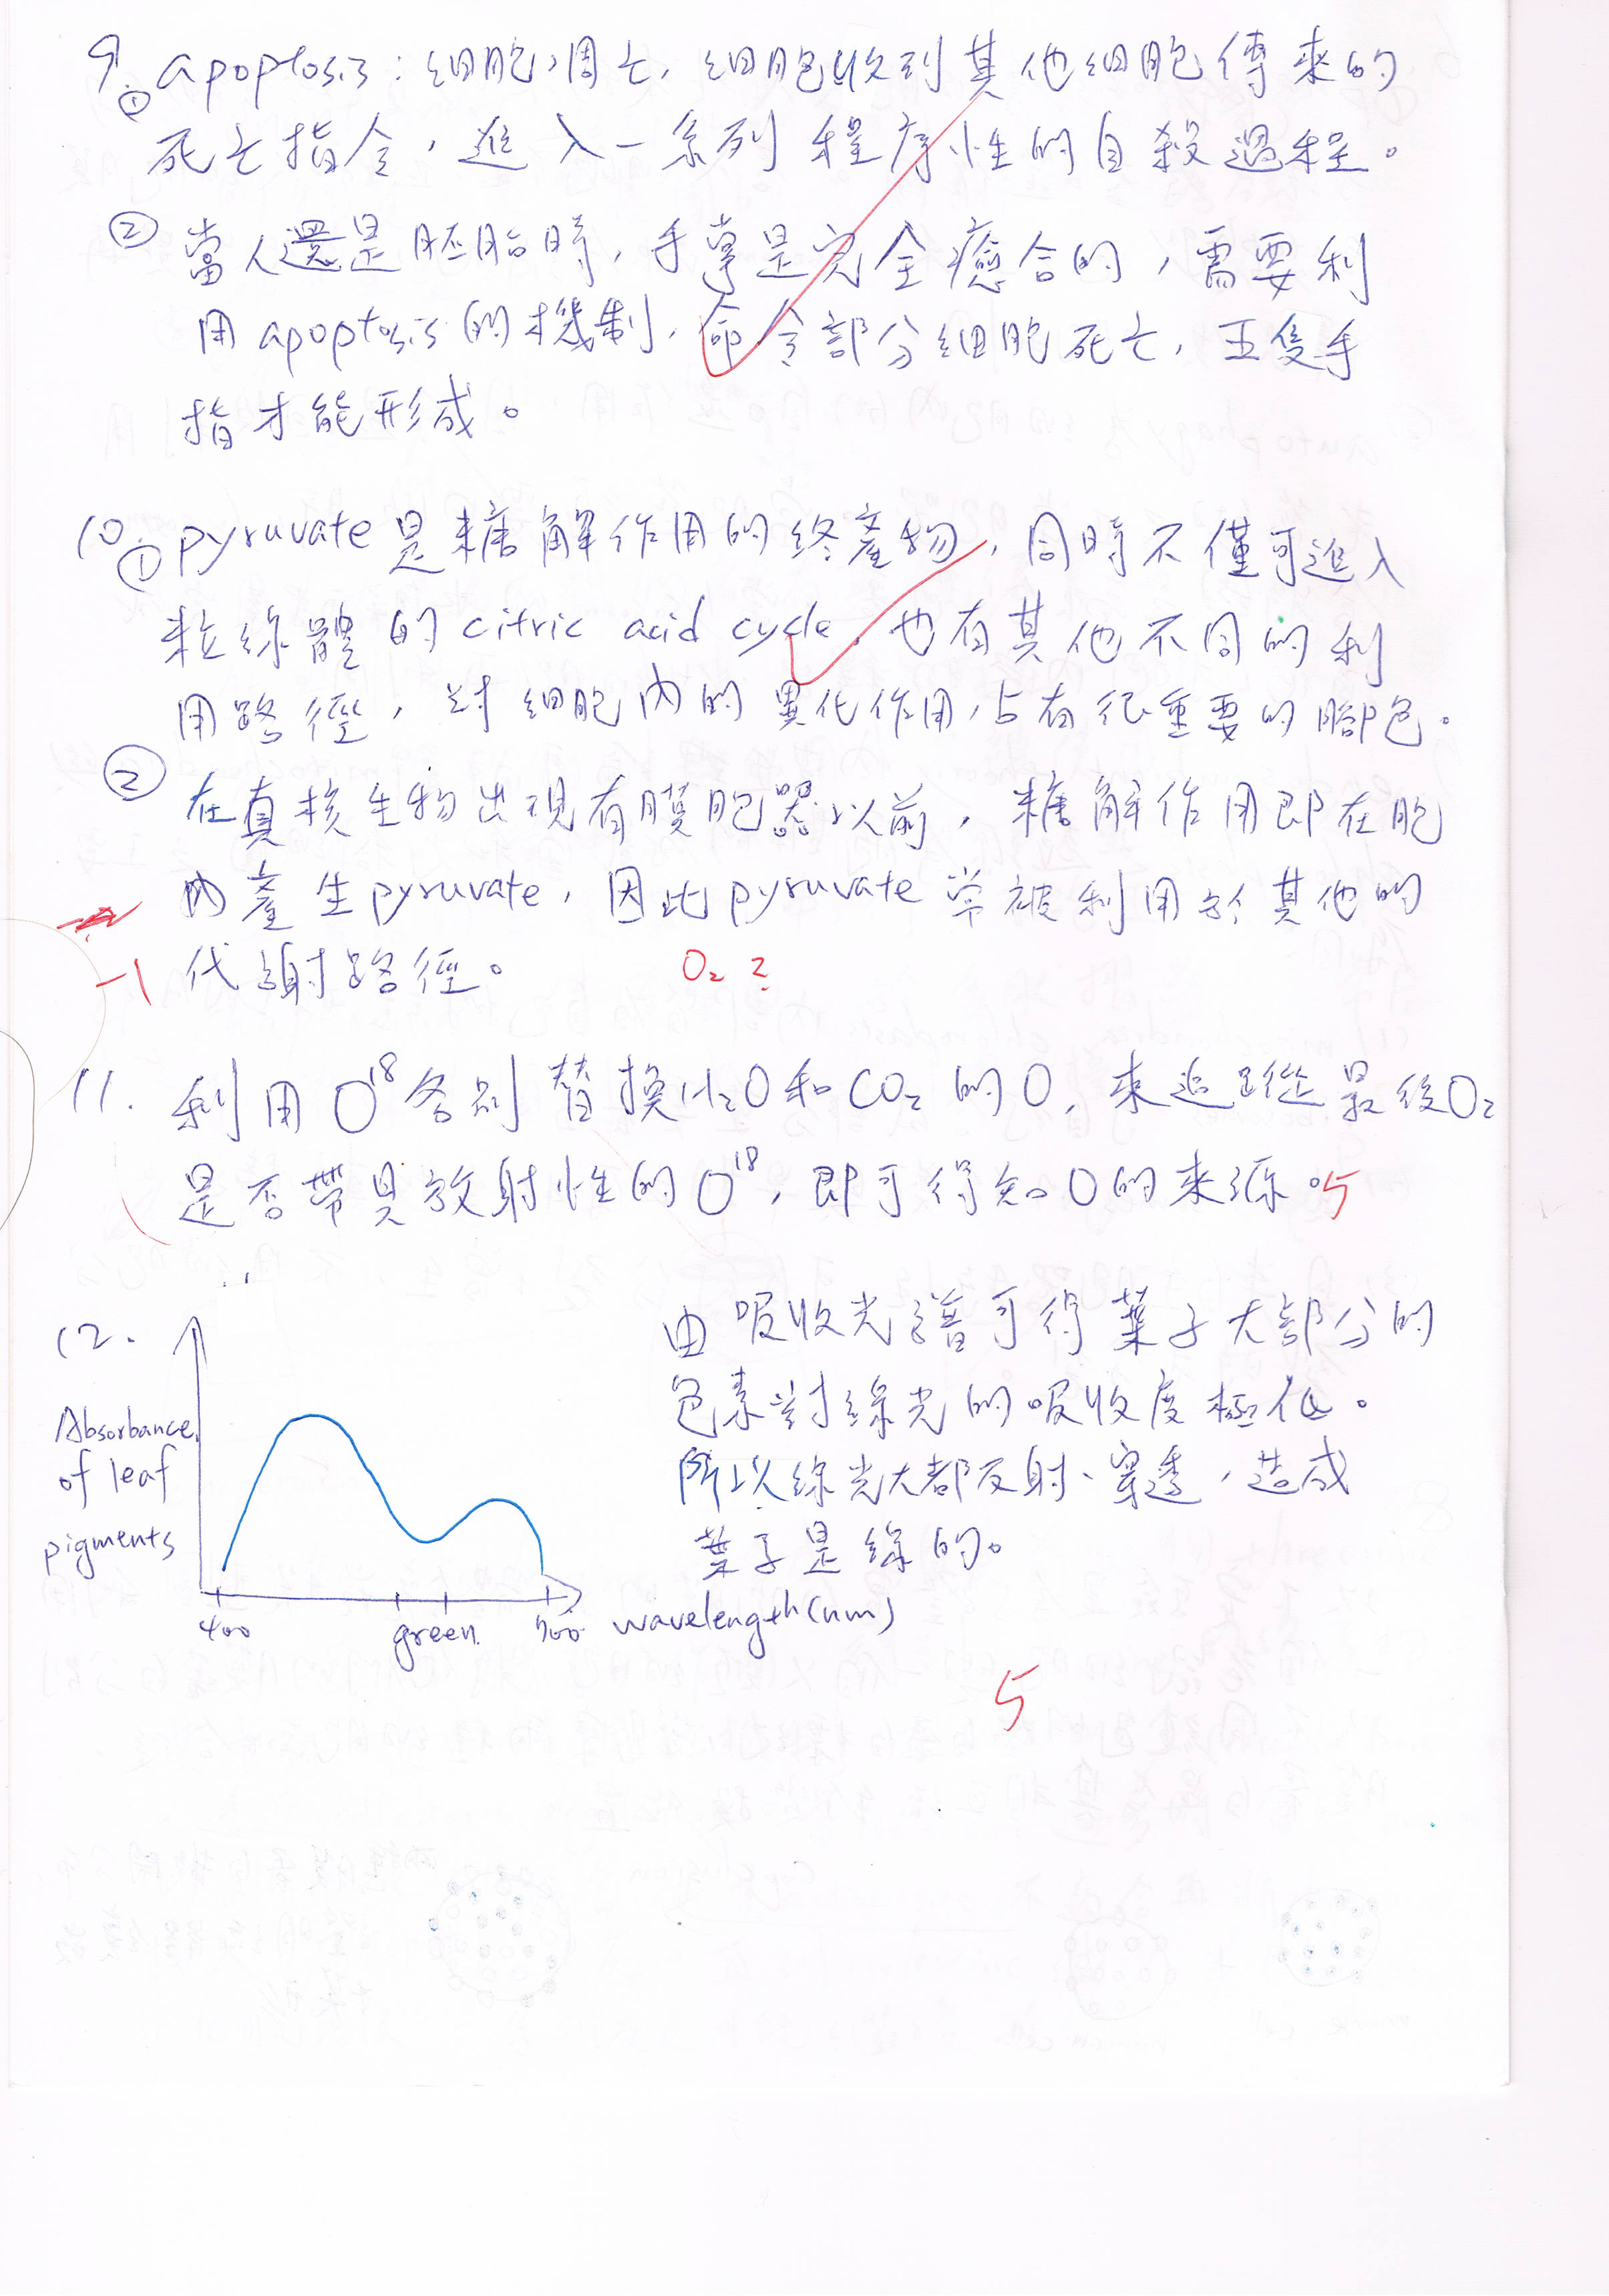 9. ① apoptosis：細胞凋亡，細胞收到其他細胞傳來的
死亡指令，進入一系列程序性的自殺過程。
② 當人還是胚胎時，手掌是完全癒合的，需要利
用apoptosis的機制，命令部分細胞死亡，五隻手
指才能形成。
10. ① pyruvate是糖解作用的終產物，同時不僅可進入
粒線體的citric acid cycle，也有其他不同的利
用路徑，對細胞內的異化作用，占有很重要的腳色。
② 在真核生物出現有膜胞器以前，糖解作用即在胞
內產生pyruvate，因此pyruvate常被利用於其他的
-1 代謝路徑。 O₂ ?
11. 利用O¹⁸各別替換H₂O和CO₂的O，來追蹤最後O₂
是否帶具放射性的O¹⁸，即可得知O的來源。5
12.
Absorbance
of leaf
pigments
400 green 700 wavelength(nm)
由吸收光譜可得葉子大部分的
色素對綠光的吸收度極低。
所以綠光大都反射、穿透，造成
葉子是綠的。
5